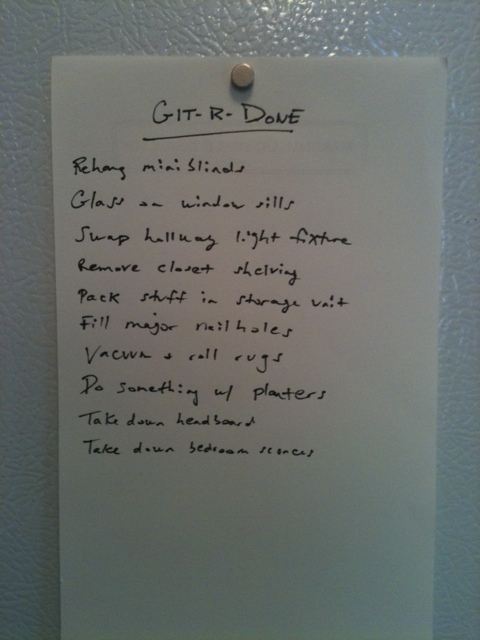 GIT-R-DONE
Rehang miniblinds
Glass on window sills
Swap hallway light fixture
Remove closet shelving
Pack stuff in storage unit
Fill major nail holes
Vacuum + roll rugs
Do something w/ planters
Take down headboard
Take down bedroom sconces